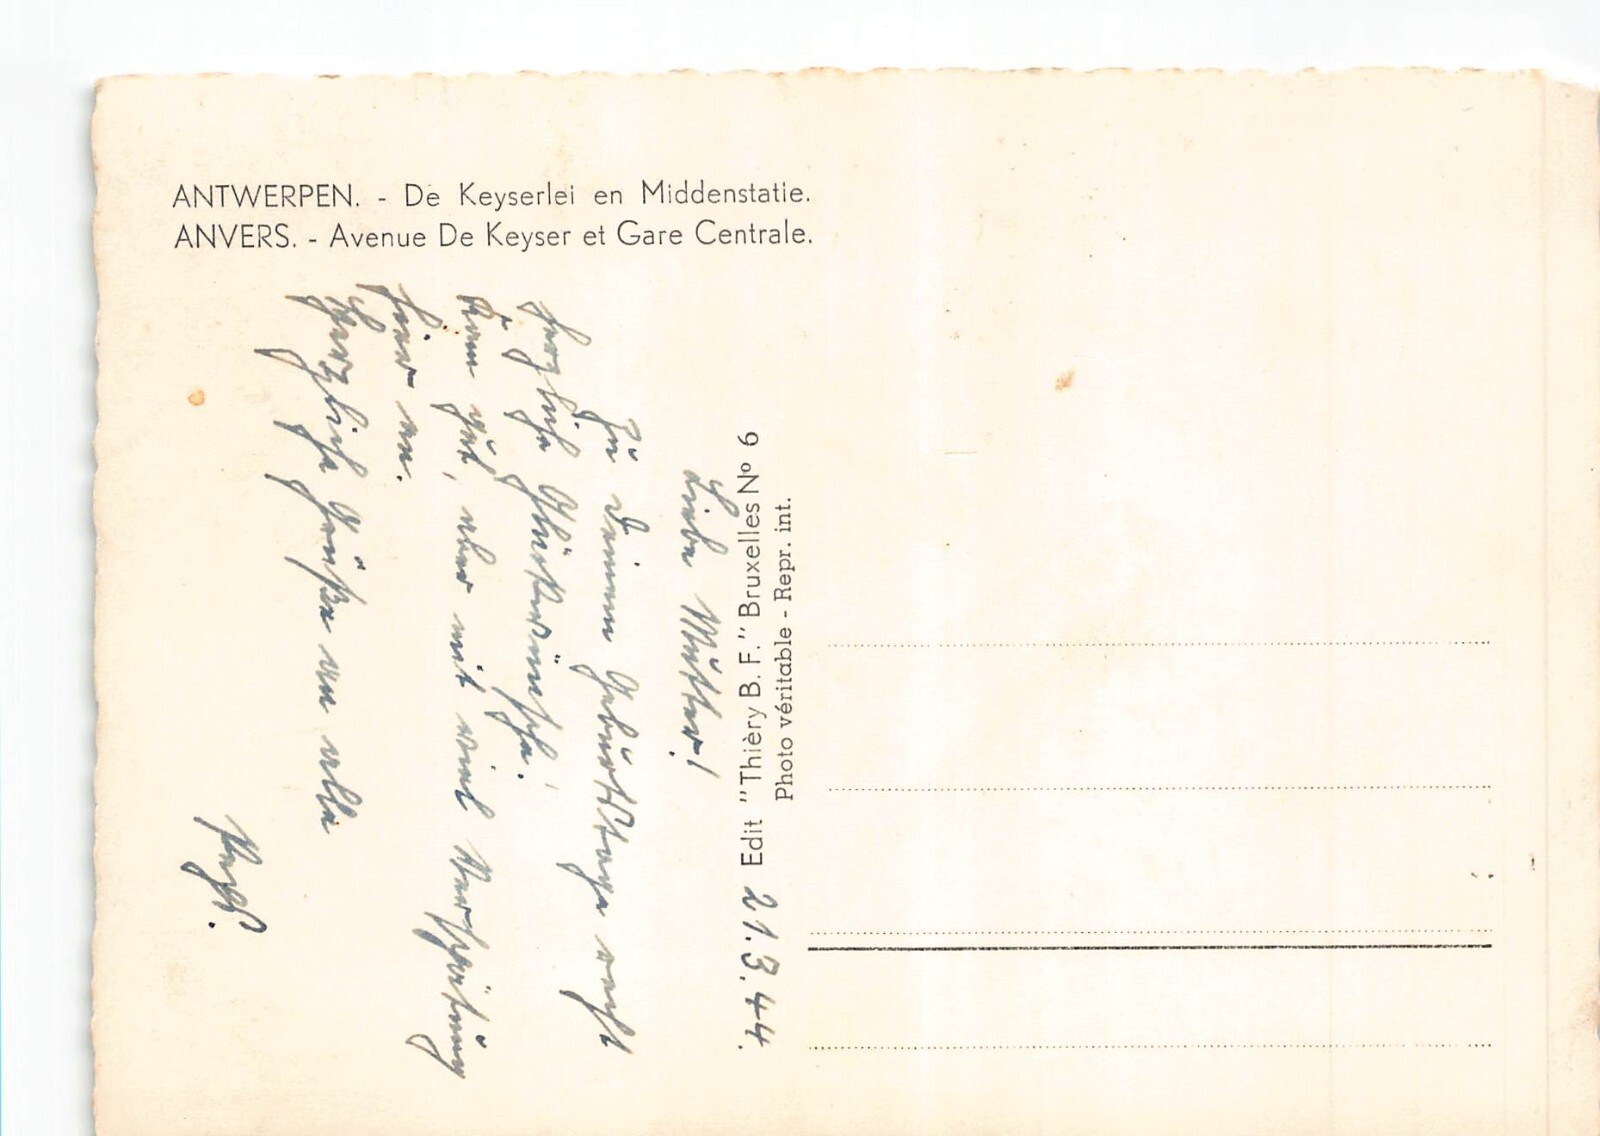 ANTWERPEN. - De Keyserlei en Middenstatie.
ANVERS. - Avenue De Keyser et Gare Centrale.
Edit "Thièry B. F." Bruxelles Nº 6
Photo véritable - Repr. int.
21.3.44.
Liebe Mutter!
Zu Deinem Geburtstage recht
herzliche Glückwünsche.
Kam gut, aber mit viel Verspätung
hier an.
Herzliche Grüße an alle